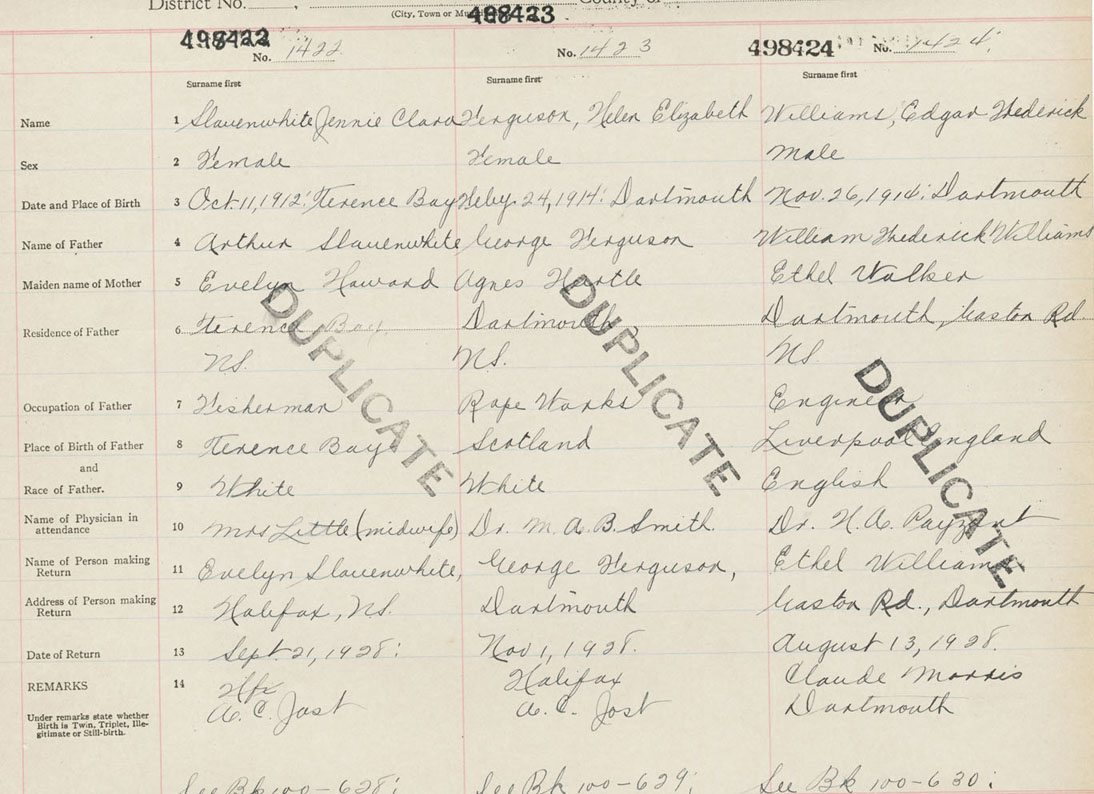 District No. , County of
(City, Town or
498422 498423 498424
No. 1422 No. 1423 No. 1424
Surname first Surname first Surname first
Name 1 Slauenwhite Jennie Clara Ferguson, Helen Elizabeth Williams, Edgar Frederick
Sex 2 Female Female Male
Date and Place of Birth 3 Oct. 11, 1912: Terence Bay Feby. 24, 1914: Dartmouth Nov. 26, 1914: Dartmouth
Name of Father 4 Arthur Slauenwhite George Ferguson William Frederick Williams
Maiden name of Mother 5 Evelyn Howard Agnes Hartle Ethel Walker
Residence of Father 6 Terence Bay Dartmouth Dartmouth, Gaston Rd.
NS. NS. NS.
Occupation of Father 7 Fisherman Rope Works Engineer
Place of Birth of Father 8 Terence Bay Scotland Liverpool England
and
Race of Father. 9 White White English
Name of Physician in attendance 10 Mrs Little (midwife) Dr. M. A. B. Smith. Dr. H. A. Payzant
Name of Person making Return 11 Evelyn Slauenwhite, George Ferguson, Ethel Williams
Address of Person making Return 12 Halifax, NS. Dartmouth Gaston Rd., Dartmouth
Date of Return 13 Sept. 21, 1928: Nov 1, 1928. August 13, 1928.
REMARKS 14 Hfx Halifax Claude Morris
A. C. Jost A. C. Jost Dartmouth
Under remarks state whether
Birth is Twin, Triplet, Ille-
gitimate or Still-birth.
See Bk 100-628: See Bk 100-629: See Bk 100-630:
DUPLICATE DUPLICATE DUPLICATE